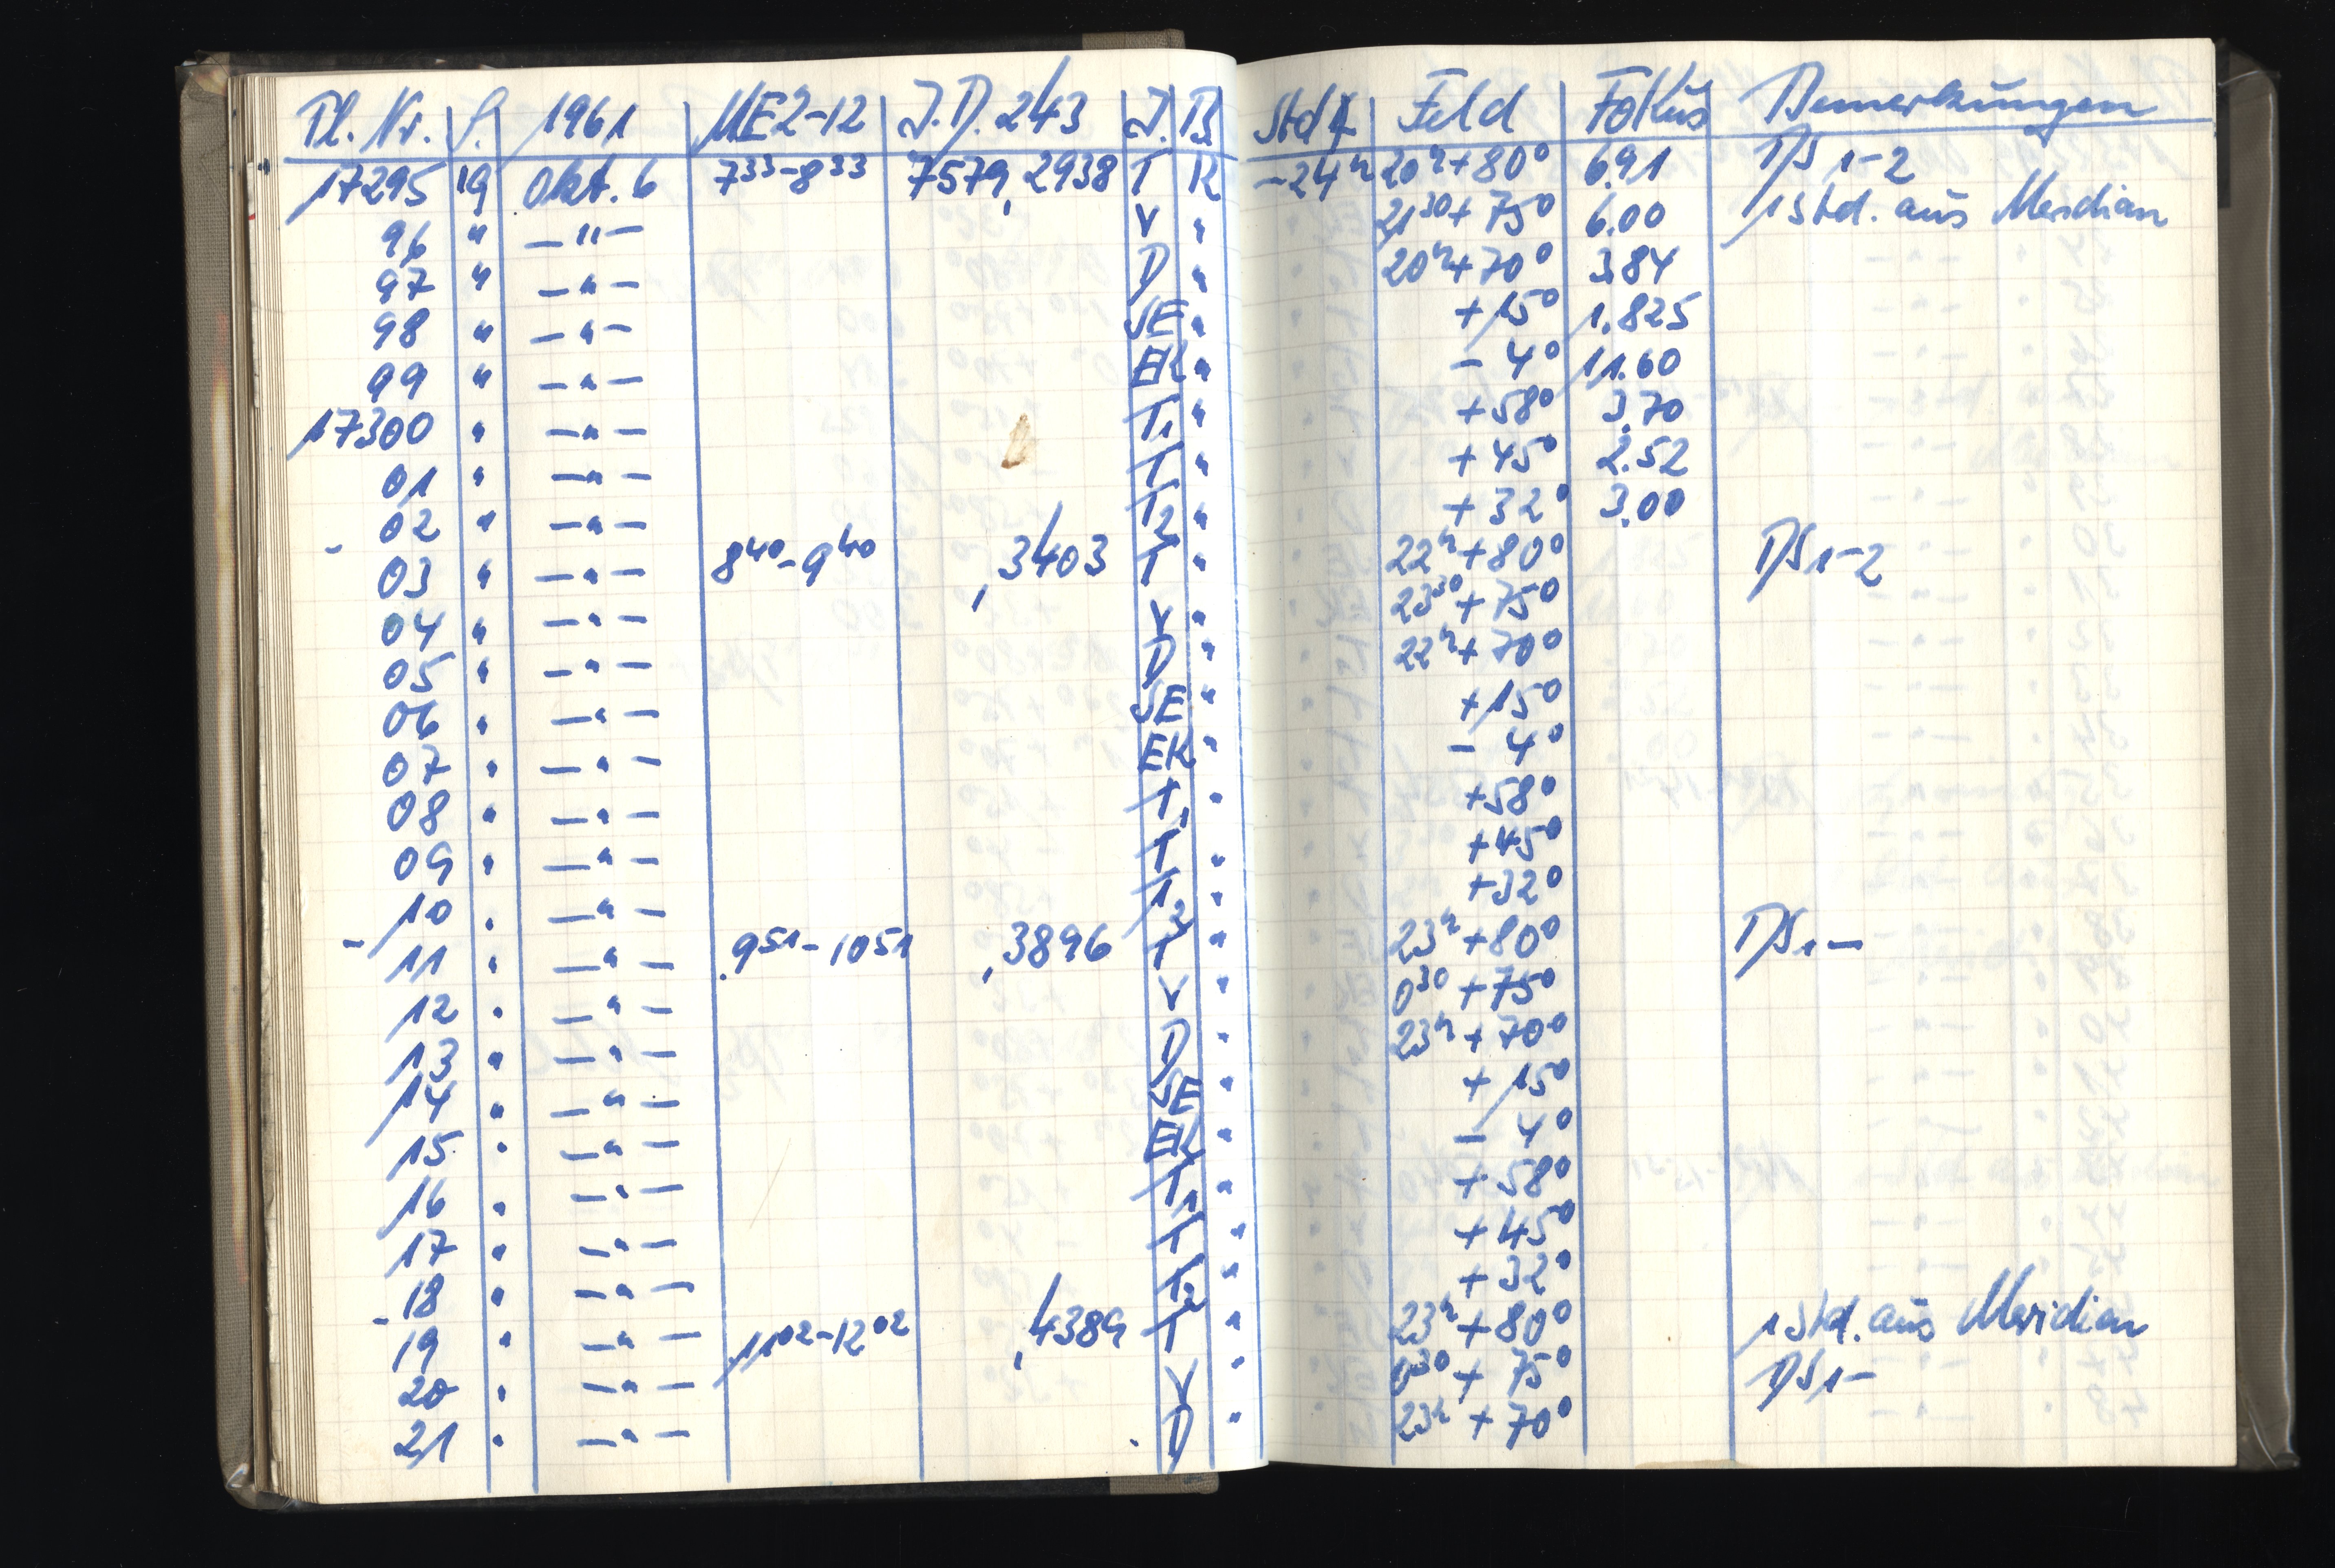 Pl. Nr. S. 1961 MEZ-12 J.D. 243 J. B Std∢ Feld Fokus Bemerkungen
17295 19 Okt. 6 7³³-8³³ 7579,2938 T R -24ᵐ 20ʰ+80° 6.91 DS 1-2
96 " —"— V " 21³⁰+75° 6.00 1 Std. aus Meridian
97 " —"— D " 20ʰ+70° 3.84
98 " —"— SE " +15° 1.825
99 " —"— EK " -4° 11.60
17300 " —"— T₁ " +58° 3.70
01 " —"— T " +45° 2.52
02 " —"— T₂ " +32° 3.00
- 03 " —"— 8⁴⁰-9⁴⁰ ,3403 T " 22ʰ+80° DS 1-2
04 " —"— V " 23³⁰+75°
05 " —"— D " 22ʰ+70°
06 " —"— SE " +15°
07 " —"— EK " -4°
08 " —"— T₁ " +58°
09 " —"— T " +45°
10 " —"— T₂ " +32°
- 11 " —"— 9⁵¹-10⁵¹ ,3896 T " 23ʰ+80° DS 1-
12 " —"— V " 0³⁰+75°
13 " —"— D " 23ʰ+70°
14 " —"— SE " +15°
15 " —"— EK " -4°
16 " —"— T₁ " +58°
17 " —"— T " +45°
18 " —"— T₂ " +32°
- 19 " —"— 11⁰²-12⁰² ,4389 T " 23ʰ+80° 1 Std. aus Meridian
20 " —"— V " 0³⁰+75° DS 1-
21 " —"— D " 23ʰ+70°